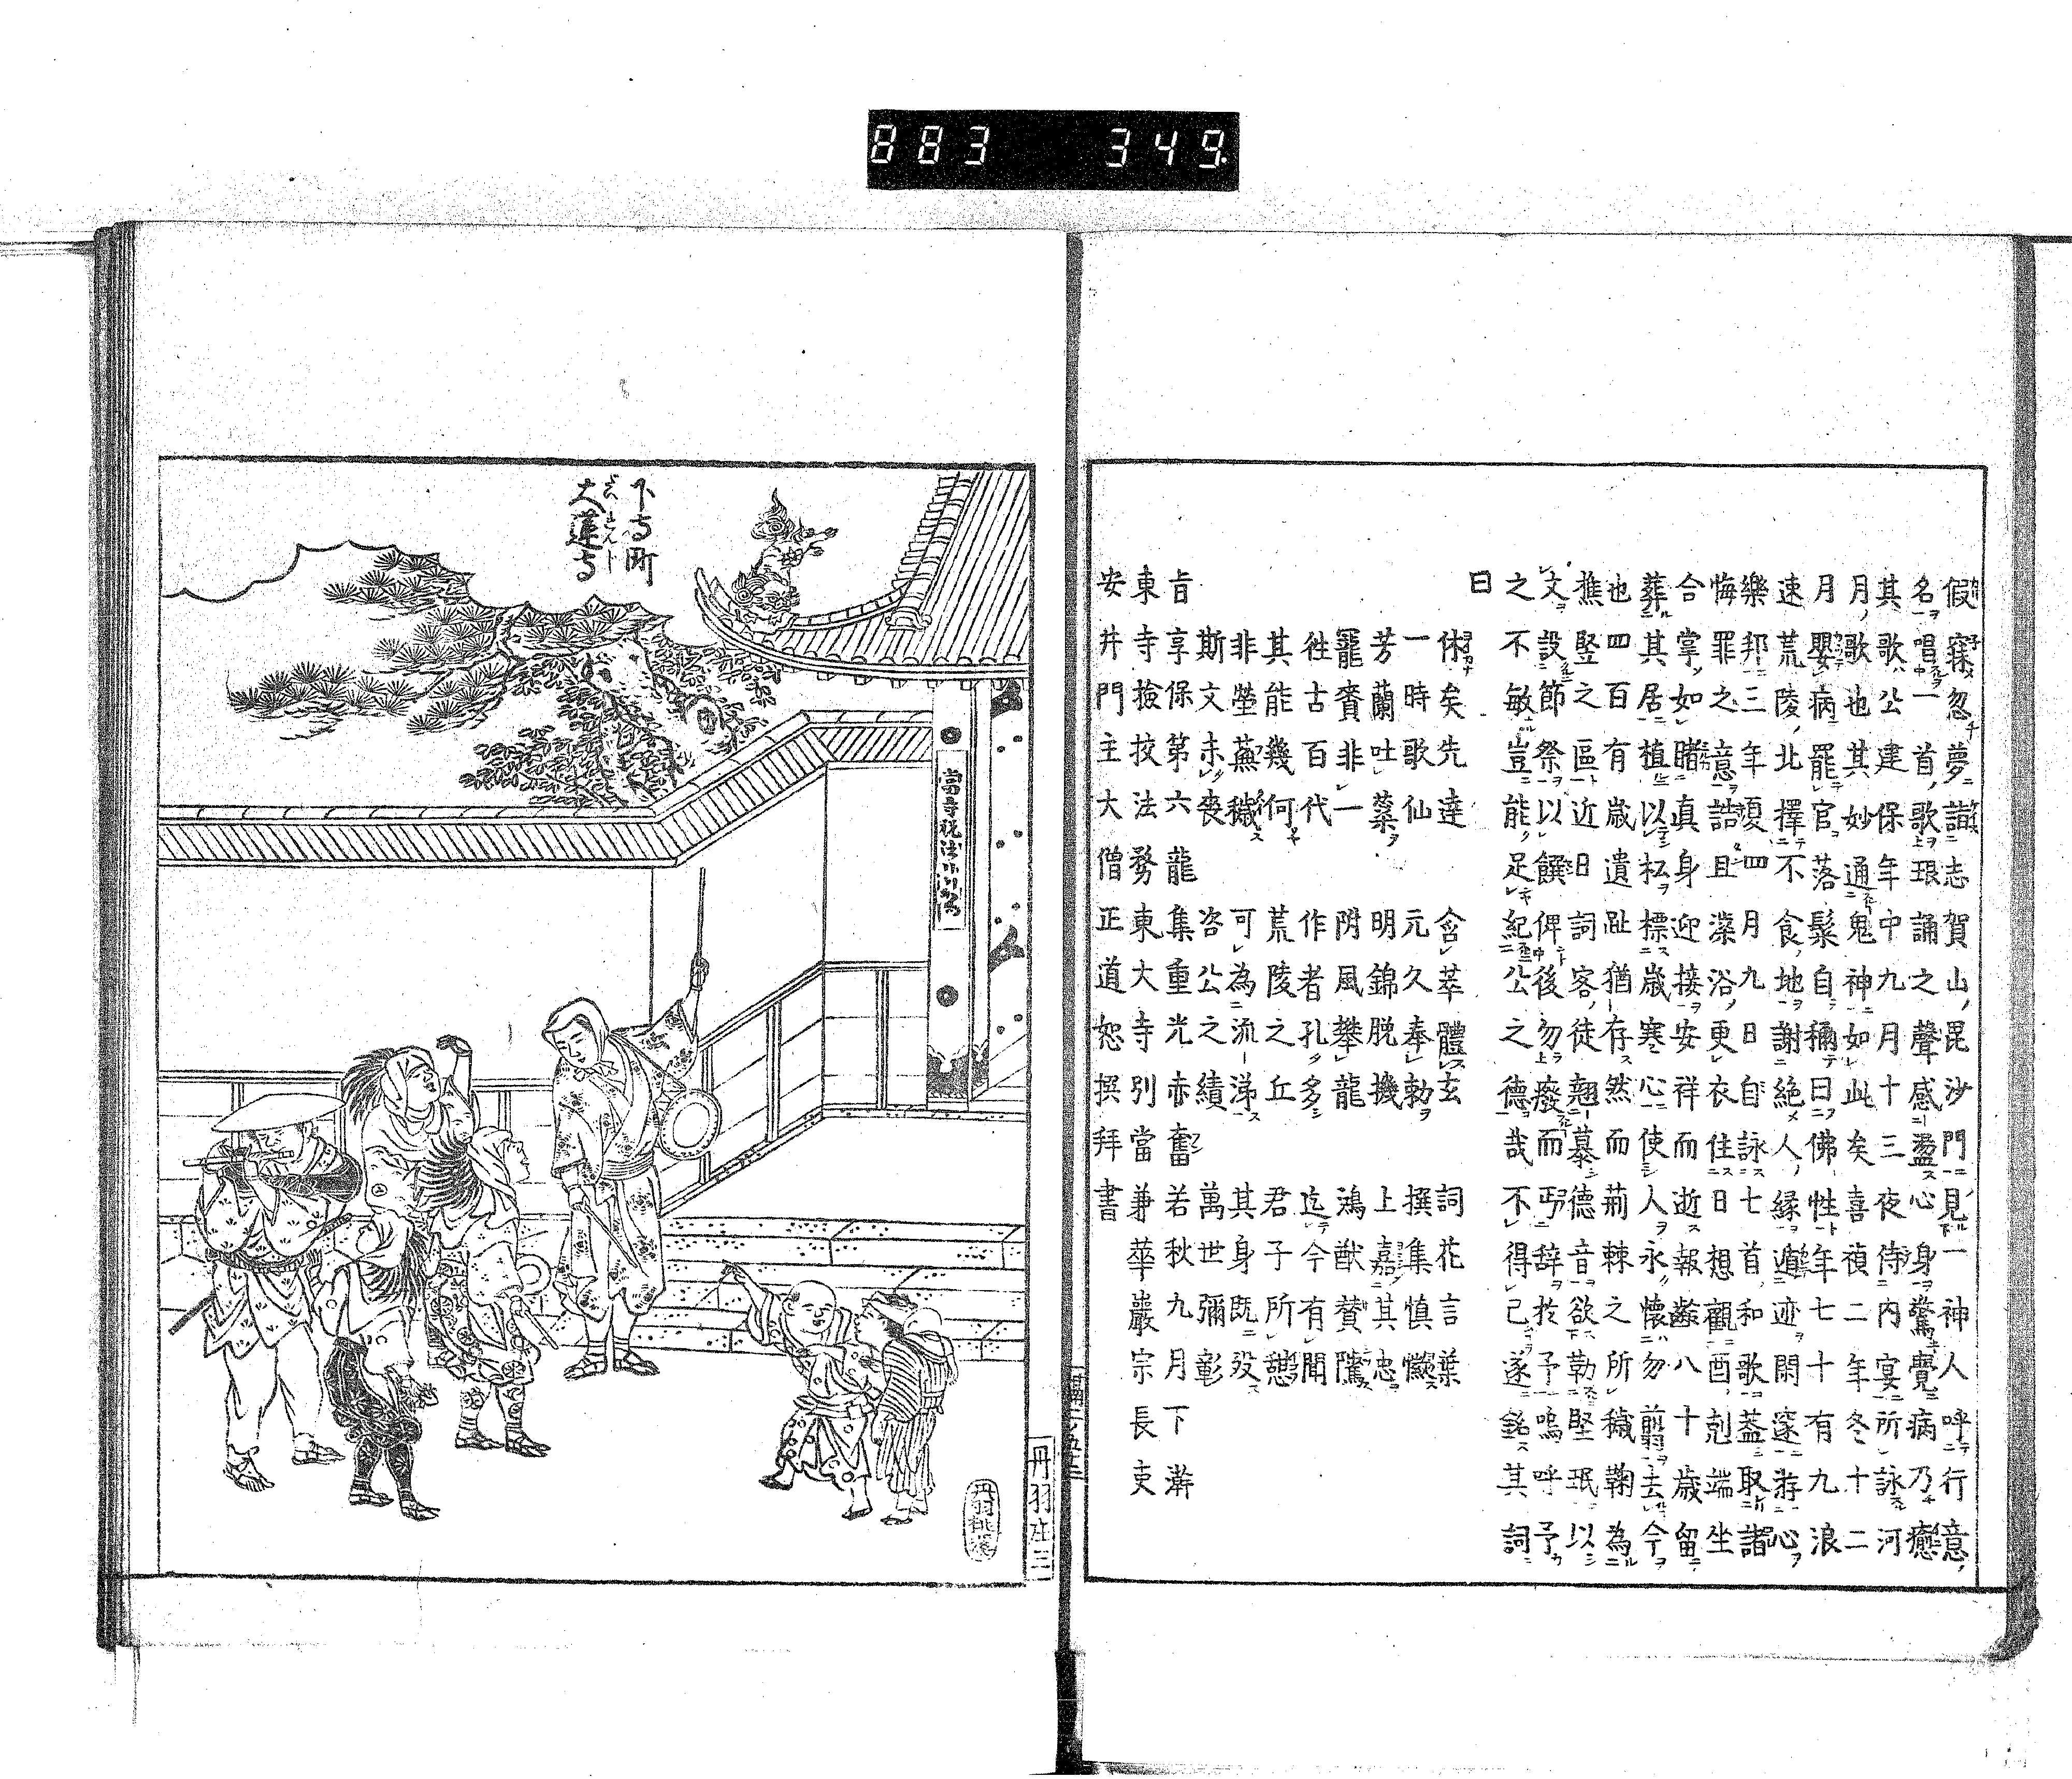 883 349
假寐忽夢詣志賀山毘沙門見一神人呼行意
名唱一首歌琅誦之聲感盈心身驚覺病乃癒
其歌公建保年中九月十三夜侍内宴所詠河
月歌也其妙通鬼神如此矣喜禎二年冬十二
月嬰病罷官落髮自稱曰佛性年七十有九浪
速荒陵北擇不食地謝絶人縁遁迹閑邃游心
樂邦三年復四月九日自詠七首和歌蓋取諸
悔罪之意詰且澡浴更衣住日想觀酉剋端坐
合掌如睹真身迎接安祥而逝報齡八十歳留
葬其居植以松標歳寒心使人永懷勿剪去今
也四百有歳遺趾猶存然而荊棘之所穢鞠為
樵竪之區近日詞客徒翹慕德音欲勒堅珉以
文設節祭以饌俾後勿廢而丐辞於予嗚呼予
之不敏豈能足紀公之德哉不得已遂銘其詞
曰
休矣先達 含萃體玄 詞花言葉
一時歌仙 元久奉勅 撰集慎懺
芳蘭吐蘂 明錦脱機 上嘉其忠
寵賚非一 附風攀龍 鴻猷賛隲
徃古百代 作者孔多 迄今有聞
其能幾何 荒陵之丘 君子所憩
非塋蕪穢 可為流涕 其身既殁
斯文未喪 咨公之績 萬世彌彰
旹享保第六龍集重光赤奮若秋九月下澣
東寺撿挍法務東大寺別當兼華嚴宗長吏
安井門主大僧正道恕撰拝書
下寺町
大蓮寺
當寺説法
丹羽桃溪